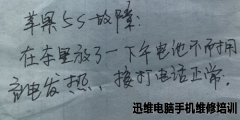 苹果5S故障:
在车里放了一下午电池不耐用
充电发热,接打电话正常.
迅维电脑手机维修培训